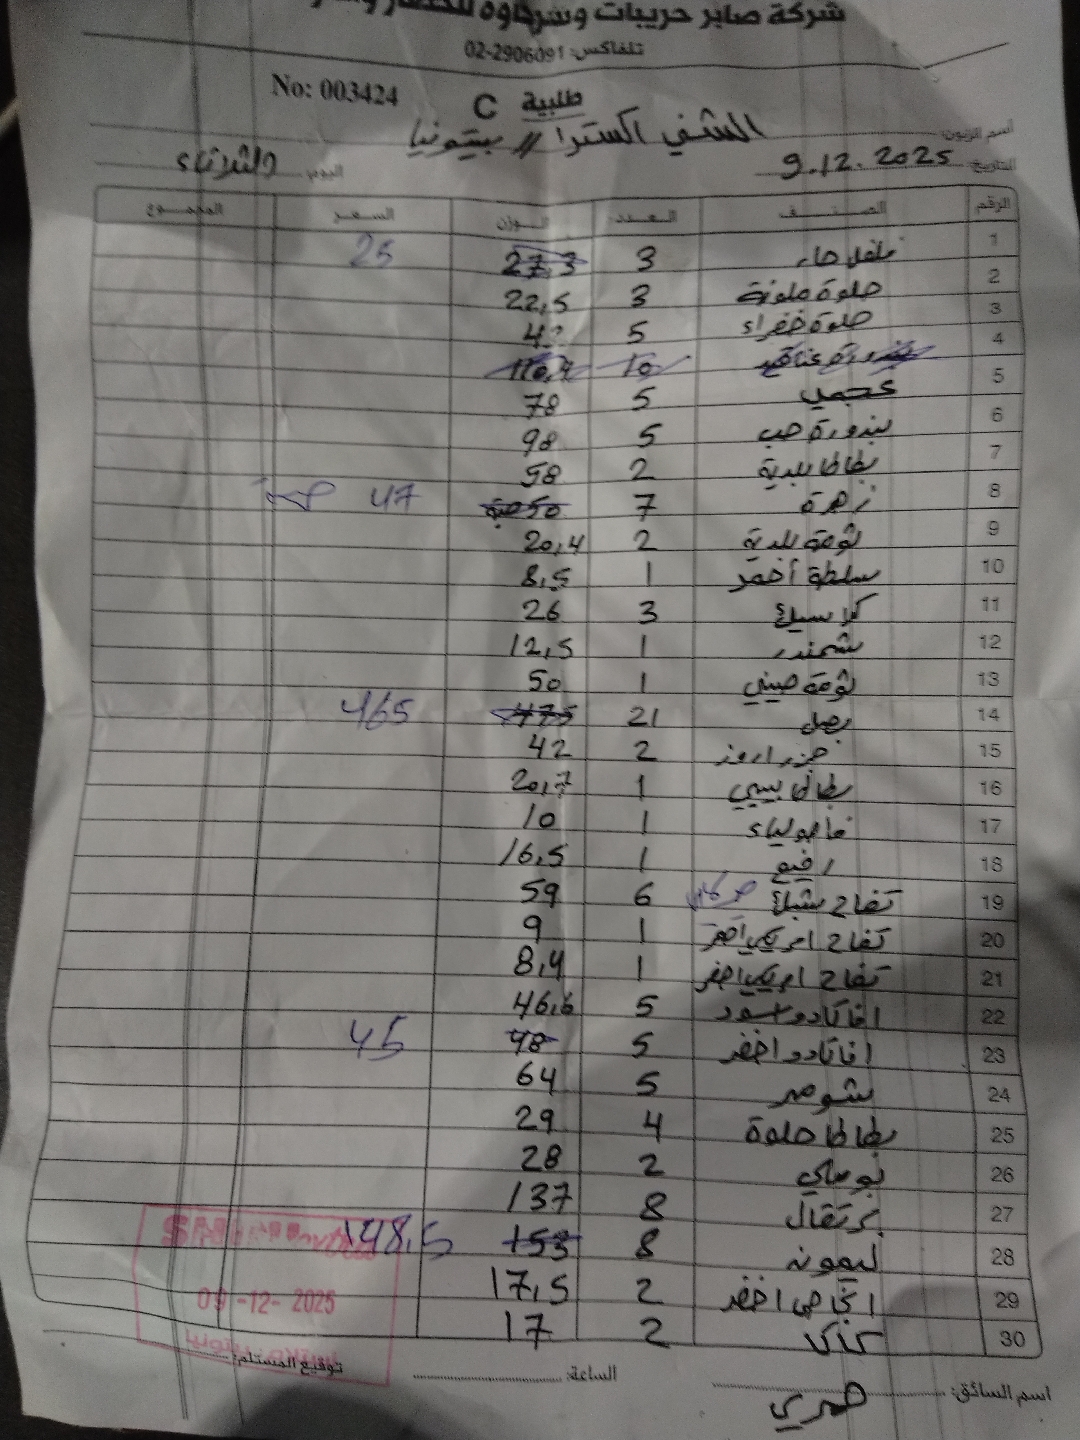 شركة صابر حريبات وشركاوه للخضار
تلفاكس: 02-2906091
No: 003424
طلبية C
اسم الزبون: الشني اكسترا // بيتونيا
التاريخ: 9.12.2025 اليوم: والثلاثاء
الرقم الصنف العدد الوزن السعر المجموع
1 فلفل حار 3 27,3 25
2 حلوة ملونة 3 22,5
3 حلوة خضراء 5
4 بندورة عناقيد 10 110,4
5 عجمي 5 78
6 بندورة حب 5 98
7 بطاطا بلدية 2 58
8 زهرة 7 50 47
9 ثومة بلدية 2 20,4
10 سلطة أخضر 1 8,5
11 كلاسيك 3 26
12 شمندر 1 12,5
13 ثومة صيني 1 50
14 بصل 21 475 465
15 جزر اروز 2 42
16 بطاطا بيبي 1 20,7
17 فاصولياء 1 10
18 رفيع 1 16,5
19 تفاح سبلك 6 59
20 تفاح امريكي 1 9
21 تفاح امريكي اخضر 1 8,4
22 افاكادو اسود 5 46,6
23 افاكادو اخضر 5 48 45
24 شومر 5 64
25 بطاطا حلوة 4 29
26 بوملي 2 28
27 برتقال 8 137
28 ليمونه 8 153 148,5
29 انجاص اخضر 2 17,5
30 كاكا 2 17
09-12-2025
اسم السائق: صبري الساعة: توقيع المستلم: